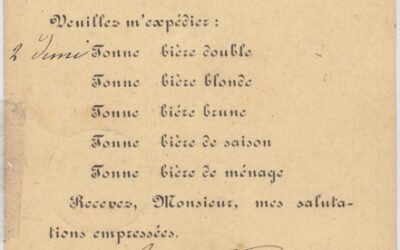 Veuillez m'expédier :
2 demi Tonne bière double
Tonne bière blonde
Tonne biére brune
Tonne bière de saison
Tonne bière de ménage
Recevez, Monsieur, mes saluta-
tions empressées.